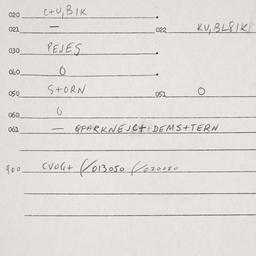 020 C+U,BIK
021 — 022 KU,BLSIK
030 PEJES
040 0
050 S+ORN 051 0
060 0
061 — GPARKNEJC+ DEMS+TERN
900 CVOG+ //013050 /020050